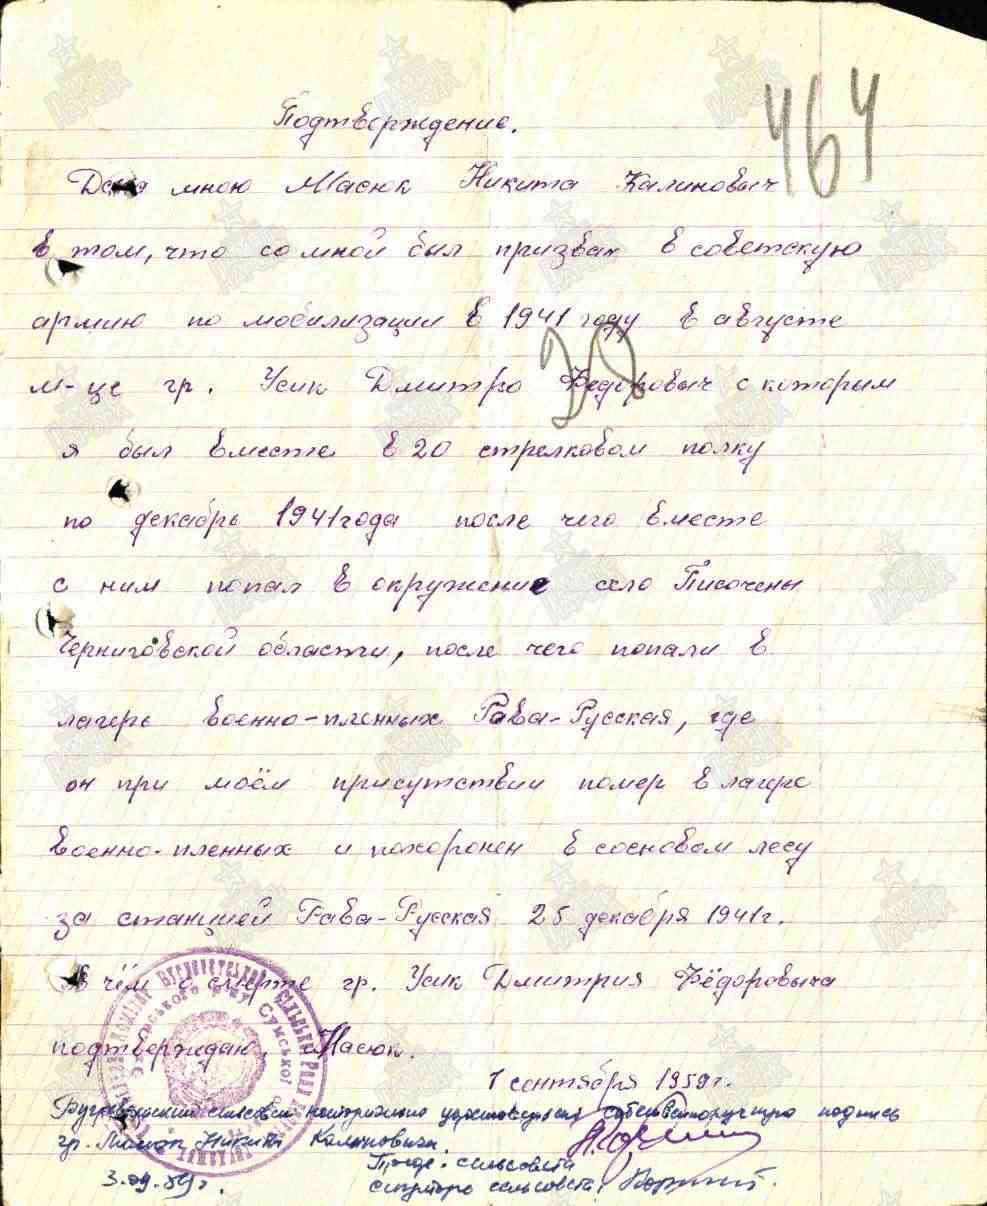 464
Подтверждение.
Дано мною Масюк Никита Калинович
в том, что со мной был призван в советскую
армию по мобилизации в 1941 году в августе
м-це гр. Усик Дмитро Федоровыч с которым
я был вместе в 20 стрелковом полку
по декабрь 1941 года после чего вместе
с ним попал в окружение село Писочены
Черниговской области, после чего попали в
лагерь военно-пленных Рава-Русская, где
он при моём присутствии помер в лагере
военно-пленных и похоронен в сосновом лесу
за станцией Рава-Русская 25 декабря 1941 г.
В чём с смерте гр. Усик Дмитрия Фёдоровича
подтверждаю. Масюк.
1 сентября 1959 г.
сельсовет ноториально удостоверяет собственноручную подпись
гр. Масюк Никиты Калиновича.
Пред. сельсовета
3.09.59 г. секретарь сельсовета